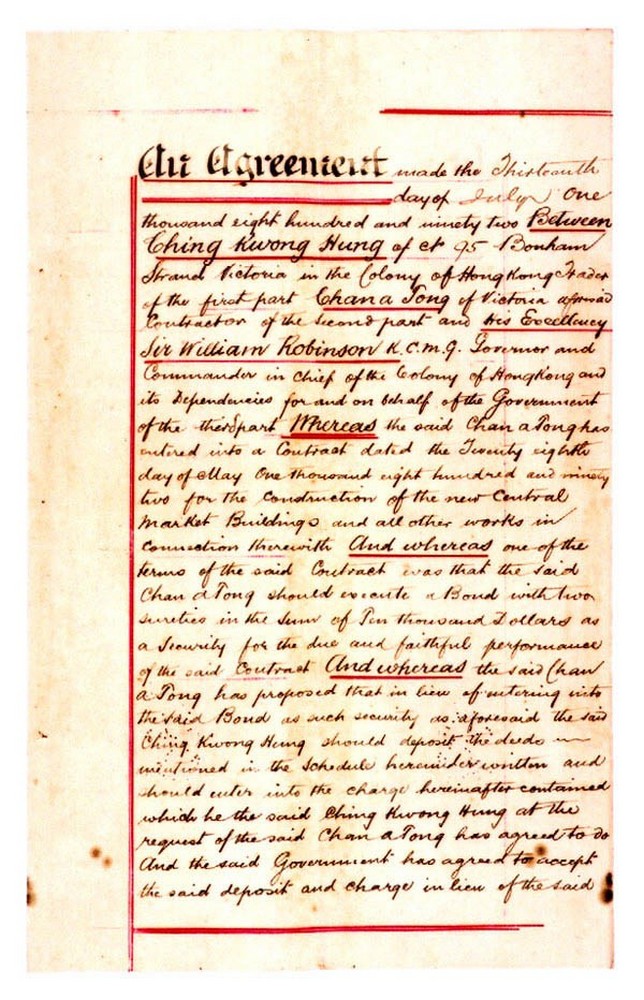 An Agreement made the Thirteenth
day of July One
thousand eight hundred and ninety two Between
Ching Kwong Hung of No 95 Bonham
Strand Victoria in the Colony of Hong Kong Trader
of the first part Chan a Tong of Victoria aforesaid
Contractor of the Second part and His Excellency
Sir William Robinson K.C.M.G. Governor and
Commander in Chief of the Colony of Hong Kong and
its Dependencies for and on behalf of the Government
of the third part Whereas the said Chan a Tong has
entered into a Contract dated the Twenty eighth
day of May One thousand eight hundred and ninety
two for the construction of the new Central
Market Buildings and all other works in
connection therewith And whereas one of the
terms of the said Contract was that the said
Chan a Tong should execute a Bond with two
sureties in the sum of Ten thousand Dollars as
a Security for the due and faithful performance
of the said Contract And whereas the said Chan
a Tong has proposed that in lieu of entering into
the said Bond as such security as aforesaid the said
Ching Kwong Hung should deposit the deeds
mentioned in the Schedule hereunder written and
should enter into the charge hereinafter contained
which he the said Ching Kwong Hung at the
request of the said Chan a Tong has agreed to do
And the said Government has agreed to accept
the said deposit and charge in lieu of the said